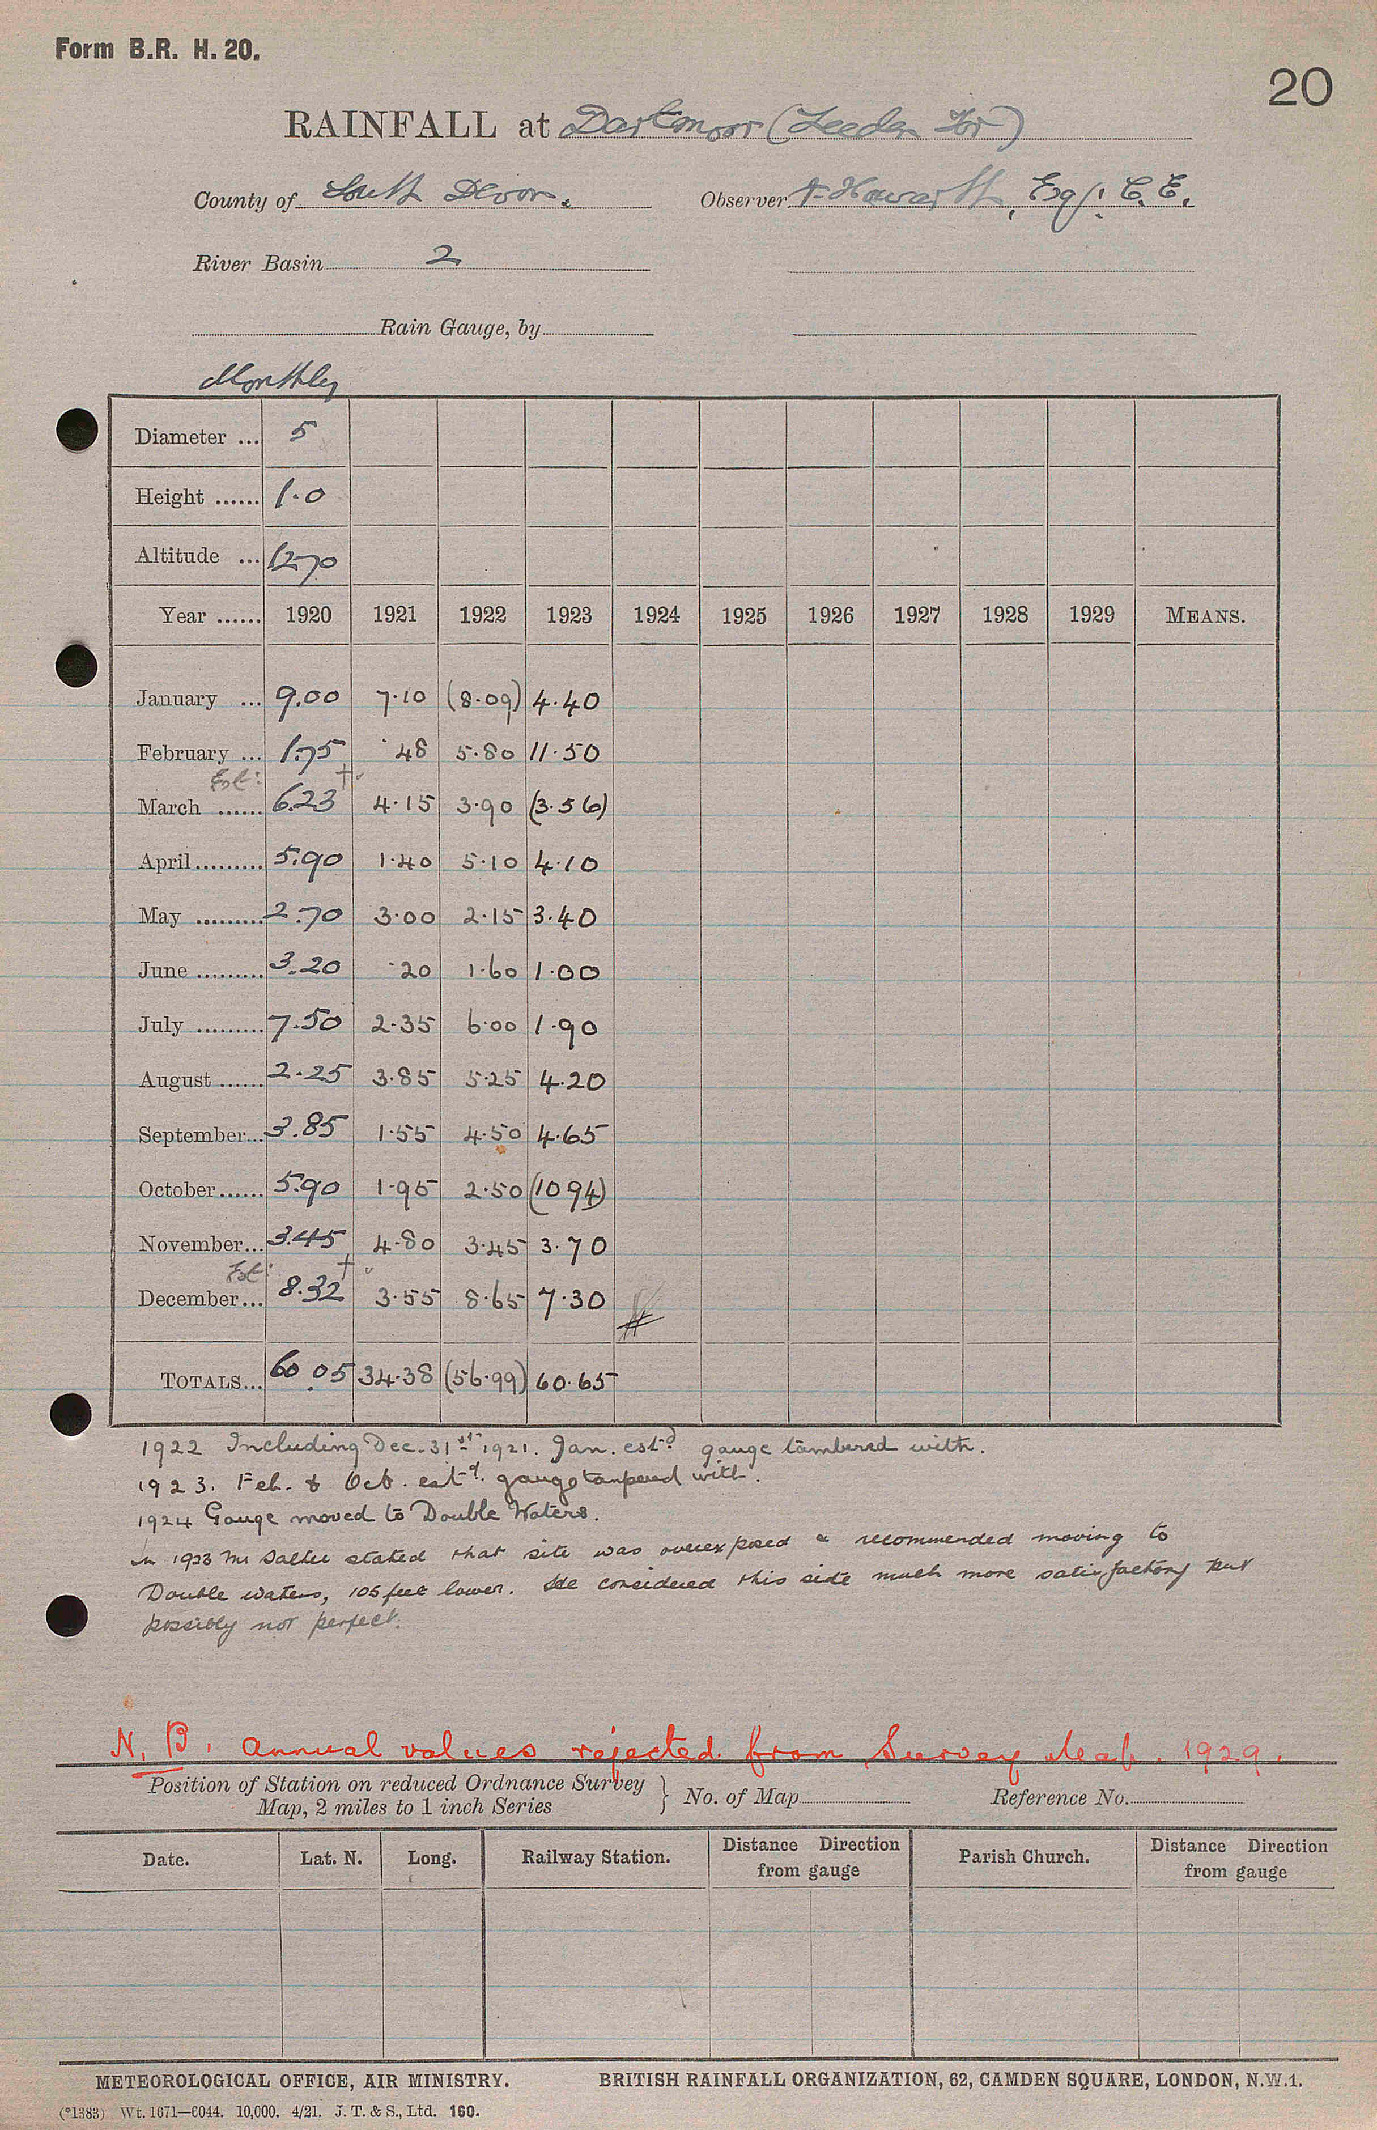 Form B.R. H. 20.
20
RAINFALL at Dartmoor (Leeden Tor)
County of South Devon. Observer A. Howarth, Esq., C.E.
River Basin 2
Rain Gauge, by
Monthly
Diameter ... 5
Height ...... 1.0
Altitude ... 1270
Year ...... 1920 1921 1922 1923 1924 1925 1926 1927 1928 1929 MEANS.
January ... 9.00 7.10 (8.09) 4.40
February ... 1.75 .48 5.80 11.50
Est: †
March ...... 6.23 4.15 3.90 (3.56)
April ......... 5.90 1.40 5.10 4.10
May ......... 2.70 3.00 2.15 3.40
June ......... 3.20 .20 1.60 1.00
July ......... 7.50 2.35 6.00 1.90
August ...... 2.25 3.85 5.25 4.20
September... 3.85 1.55 4.50 4.65
October...... 5.90 1.95 2.50 (10 94)
November... 3.45 4.80 3.45 3.70
Est: †
December... 8.32 3.55 8.65 7.30
TOTALS... 60.05 34.38 (56.99) 60.65
1922 Including Dec. 31st 1921. Jan. estd gauge tampered with.
1923. Feb. & Oct. estd. gauge tampered with.
1924 Gauge moved to Double Waters.
In 1923 Mr Salter stated that site was overexposed & recommended moving to
Double waters, 105 feet lower. He considered this site much more satisfactory but
possibly not perfect.
N.B. Annual values rejected from Survey Map. 1929.
Position of Station on reduced Ordnance Survey
Map, 2 miles to 1 inch Series } No. of Map Reference No.
Date. Lat. N. Long. Railway Station. Distance Direction from gauge Parish Church. Distance Direction from gauge
METEOROLOGICAL OFFICE, AIR MINISTRY. BRITISH RAINFALL ORGANIZATION, 62, CAMDEN SQUARE, LONDON, N.W.1.
(*1383) Wt. 1671—6044. 10,000. 4/21. J. T. & S., Ltd. 160.